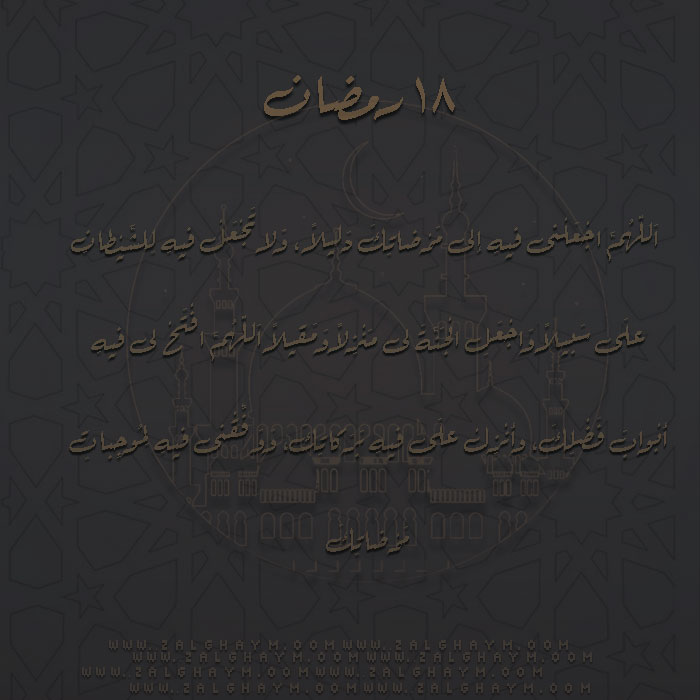 ١٨ رمضان
اَللّهُمَّ اجْعَلْني فيهِ اِلى مَرْضاتِكَ دَليلاً، وَلا تَجْعَلْ فيهِ لِلشَّيْطانِ
عَلى سَبيلاً وَاجْعَلِ الْجَنَّةَ لى مَنْزِلاً وَمَقيلاً اللّهمَّ افْتَحْ لى فيهِ
اَبْوابَ فَضْلِكَ، وَاَنْزِلْ عَلَى فيهِ بَرَكاتِكَ، وَوَفِّقْنى فيهِ لِمُوجِباتِ
مَرْضاتِكَ
WWW.ZALGHAYM.COM WWW.ZALGHAYM.COM
WWW.ZALGHAYM.COM WWW.ZALGHAYM.COM
WWW.ZALGHAYM.COM WWW.ZALGHAYM.COM
WWW.ZALGHAYM.COM WWW.ZALGHAYM.COM